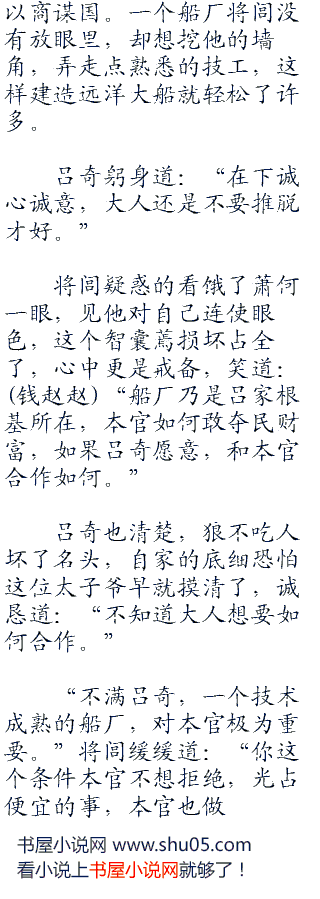 以商谋国。一个船厂将闾没
有放眼里，却想挖他的墙
角，弄走点熟悉的技工，这
样建造远洋大船就轻松了许
多。
吕奇躬身道：“在下诚
心诚意，大人还是不要推脱
才好。”
将闾疑惑的看饿了萧何
一眼，见他对自己连使眼
色，这个智囊蔫损坏占全
了，心中更是戒备，笑道：
(钱赵赵)“船厂乃是吕家根
基所在，本官如何敢夺民财
富，如果吕奇愿意，和本官
合作如何。”
吕奇也清楚，狼不吃人
坏了名头，自家的底细恐怕
这位太子爷早就摸清了，诚
恳道：“不知道大人想要如
何合作。”
“不满吕奇，一个技术
成熟的船厂，对本官极为重
要。”将闾缓缓道：“你这
个条件本官不想拒绝，光占
便宜的事，本官也做
书屋小说网 www.shu05.com
看小说上书屋小说网就够了！